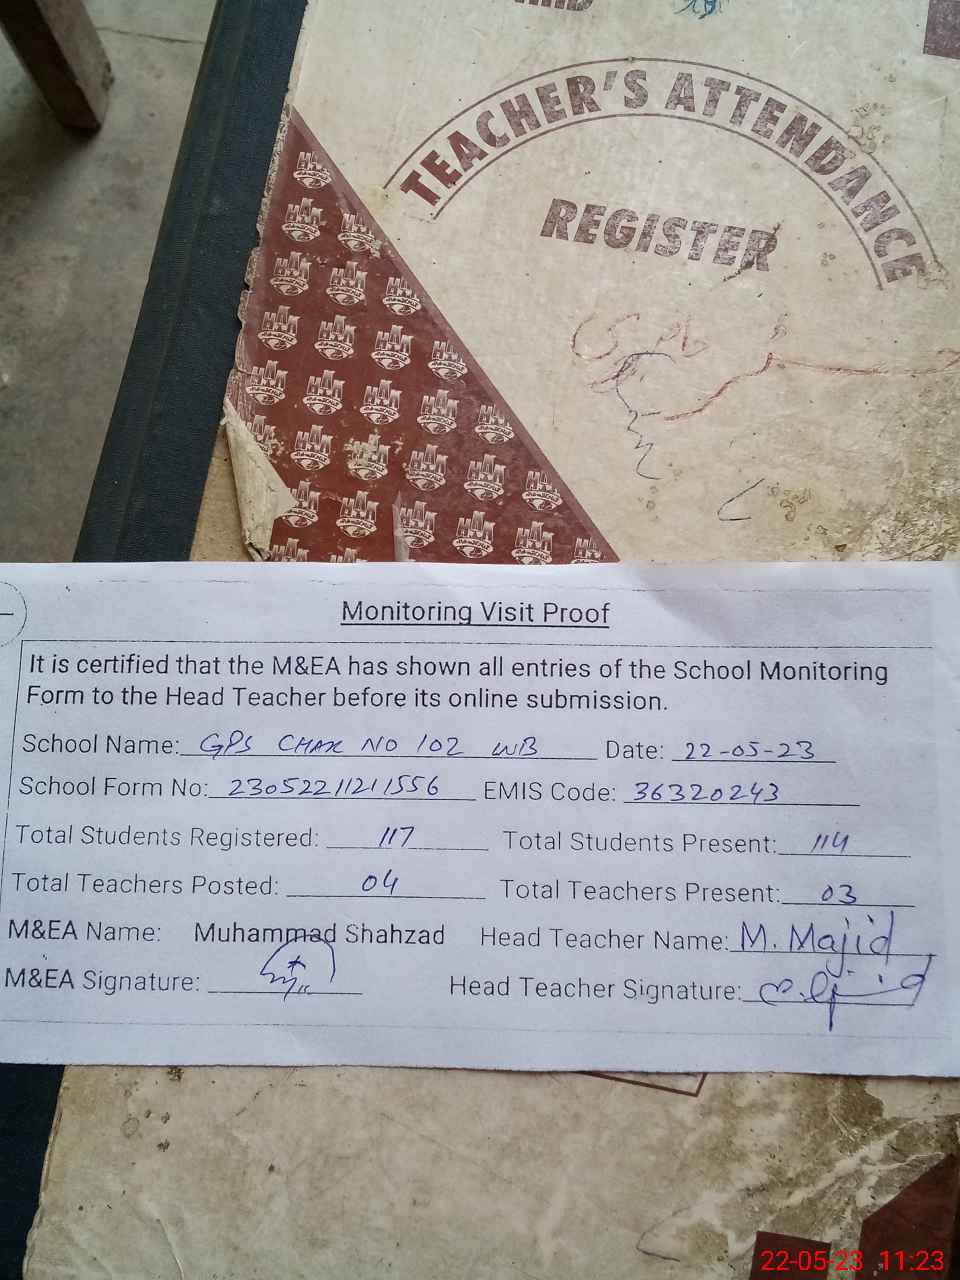 TEACHER'S ATTENDANCE
REGISTER
Monitoring Visit Proof
It is certified that the M&EA has shown all entries of the School Monitoring
Form to the Head Teacher before its online submission.
School Name: GPS CHAK NO 102 WB Date: 22-05-23
School Form No: 23052211211556 EMIS Code: 36320243
Total Students Registered: 117 Total Students Present: 114
Total Teachers Posted: 04 Total Teachers Present: 03
M&EA Name: Muhammad Shahzad Head Teacher Name: M. Majid
M&EA Signature: Head Teacher Signature:
22-05-23 11:23